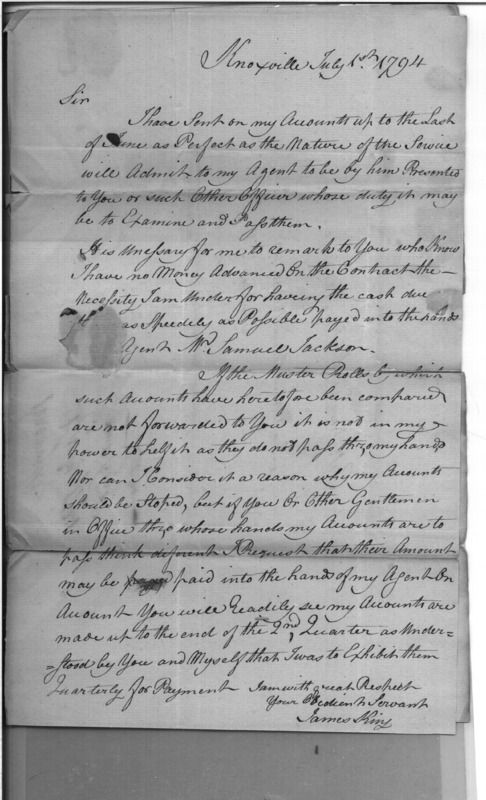 Knoxville July 1st 1794
Sir
I have Sent on my Acounts up to the Last
of June as Perfect as the Nature of the Service
will Admit to my Agent to be by him Presented
to You or such Other Officer whose duty it may
be to Examine and Pass them.
It is Unessary for me to remark to You who Know
I have no Money Advanced On the Contract the
Necessity I am Under for having the cash due
as Speedily as Possible payed into the hands
Agent Mr. Samuel Jackson.
If the Muster Rolls by which
such Acounts have heretofore been compared
are not forwarded to You it is not in my
power to help it as they do not pass thro my hands
Nor can I Consider it a reason why my Acounts
should be Stoped, but if You Or Other Gentlemen
in Office thro whose hands my Acounts are to
pass think diferent I Request that their Amount
may be paid into the hands of my Agent On
Acount You will Readily see my Acounts are
made up to the end of the 2nd, Quarter as Under=
=stood by You and Myself that I was to Exhibit them
Quarterly for Payment I am with great Respect
Your Obedient Servant
James King